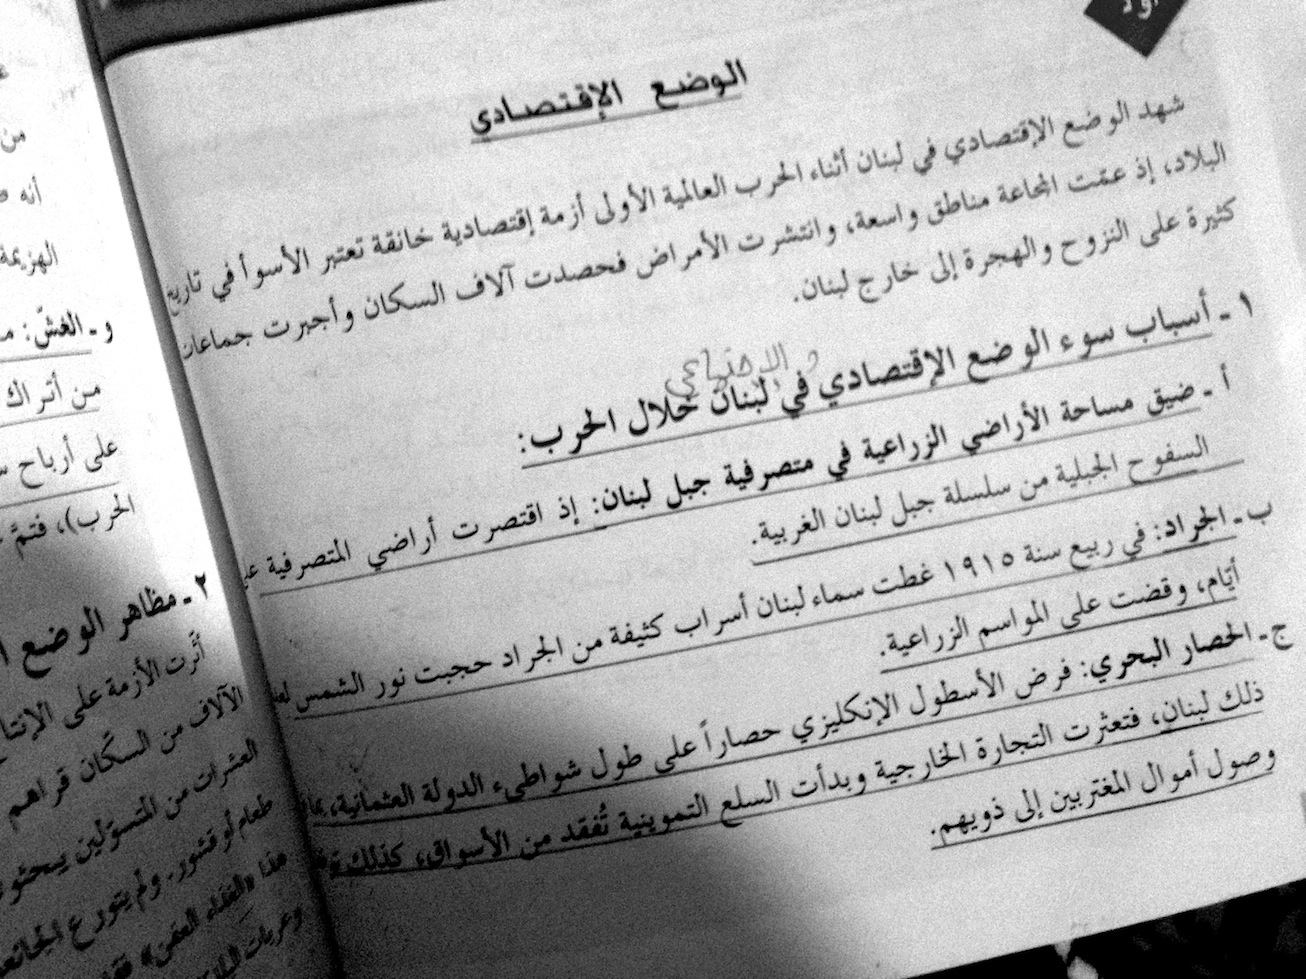 الوضع الإقتصادي
شهد الوضع الإقتصادي في لبنان أثناء الحرب العالمية الأولى أزمة إقتصادية خانقة تعتبر الأسوأ في تاريخ
البلاد، إذ عمّت المجاعة مناطق واسعة، وانتشرت الأمراض فحصدت آلاف السكان وأجبرت جماعات
كثيرة على النزوح والهجرة إلى خارج لبنان.
والإجتماعي
١ - أسباب سوء الوضع الإقتصادي في لبنان خلال الحرب:
أ - ضيق مساحة الأراضي الزراعية في متصرفية جبل لبنان: إذ اقتصرت أراضي المتصرفية
السفوح الجبلية من سلسلة جبل لبنان الغربية.
ب - الجراد: في ربيع سنة ١٩١٥ غطت سماء لبنان أسراب كثيفة من الجراد حجبت نور الشمس
أيّام، وقضت على المواسم الزراعية.
ج - الحصار البحري: فرض الأسطول الإنكليزي حصاراً على طول شواطىء الدولة العثمانية،
ذلك لبنان، فتعثرت التجارة الخارجية وبدأت السلع التموينية تُفقد من الأسواق، كذلك
وصول أموال المغتربين إلى ذويهم.
من
أنه
الهزيمة
و - الغشّ:
من أتراك
على أرباح
الحرب)، فتمَّ
٢ - مظاهر الوضع
أثّرت الأزمة على
الآلاف من السكّان قراهم
العشرات من المتسوّلين
طعام أو قشور. ولم يتورع
هذا «الغذاء العفن»
وعربات